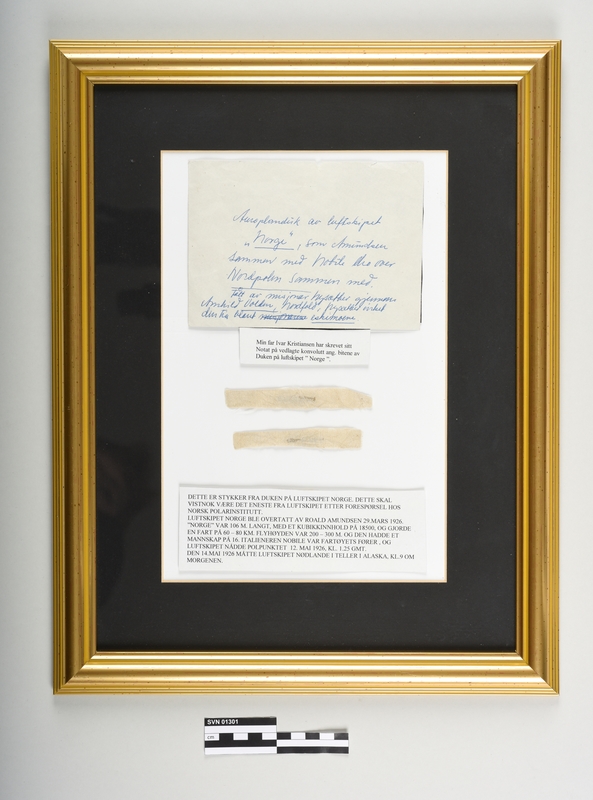 Aeroplanduk av luftskipet
"Norge", som Amundsen
sammen med Nobile dro over
Nordpolen sammen med.
Fått av misjonær
Arnhild Volden, Nordfold,
denne blant misjonærene eskimoene
Min far Ivar Kristiansen har skrevet sitt
Notat på vedlagte konvolutt ang. bitene av
Duken på luftskipet " Norge ".
DETTE ER STYKKER FRA DUKEN PÅ LUFTSKIPET NORGE. DETTE SKAL
VISTNOK VÆRE DET ENESTE FRA LUFTSKIPET ETTER FORESPØRSEL HOS
NORSK POLARINSTITUTT.
LUFTSKIPET NORGE BLE OVERTATT AV ROALD AMUNDSEN 29.MARS 1926.
"NORGE" VAR 106 M. LANGT, MED ET KUBIKKINNHOLD PÅ 18500, OG GJORDE
EN FART PÅ 60 – 80 KM. FLYHØYDEN VAR 200 – 300 M. OG DEN HADDE ET
MANNSKAP PÅ 16. ITALIENEREN NOBILE VAR FARTØYETS FØRER , OG
LUFTSKIPET NÅDDE POLPUNKTET 12. MAI 1926, KL. 1.25 GMT.
DEN 14.MAI 1926 MÅTTE LUFTSKIPET NØDLANDE I TELLER I ALASKA, KL.9 OM
MORGENEN.
SVN 01301
cm